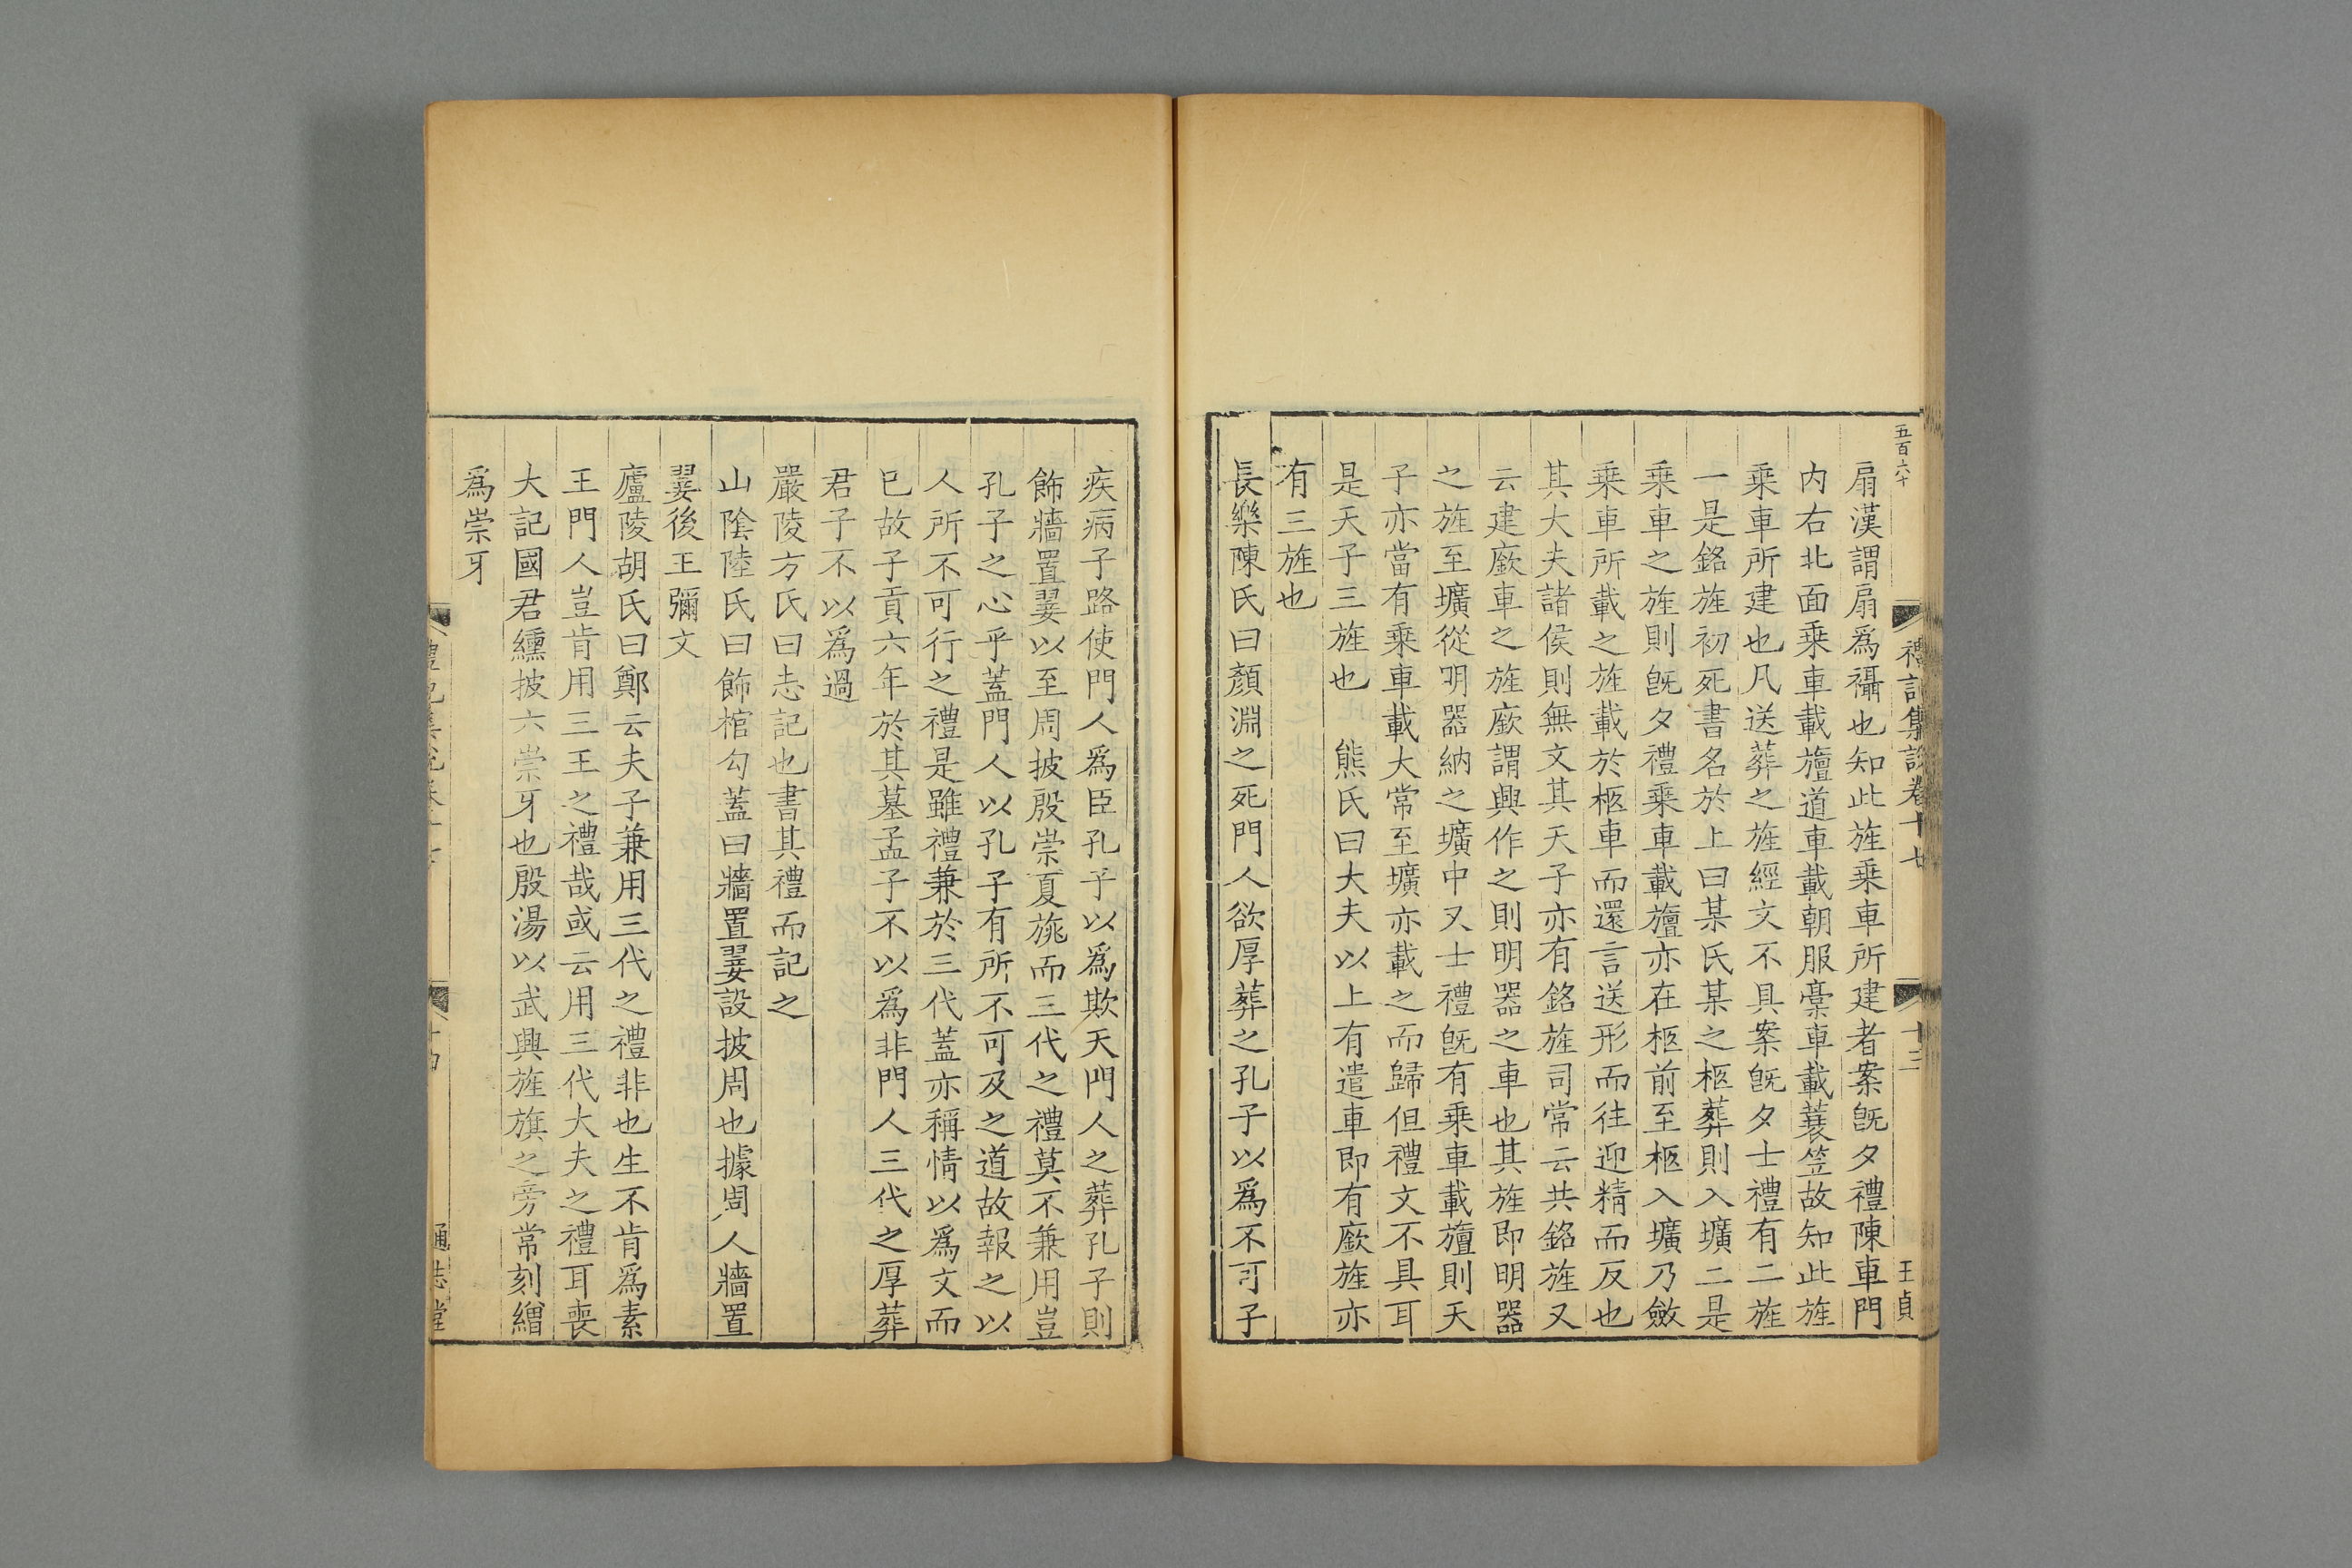 五百六十
禮記集說卷十七
十三
王貞
扇漢謂扇爲襵也知此旌乗車所建者案旣夕禮陳車門
内右北面乗車載旜道車載朝服槀車載蓑笠故知此旌
乗車所建也凡送葬之旌經文不具案旣夕士禮有二旌
一是銘旌初死書名於上曰某氏某之柩葬則入壙二是
乗車之旌則旣夕禮乗車載旜亦在柩前至柩入壙乃斂
乗車所載之旌載於柩車而還言送形而往迎精而反也
其大夫諸侯則無文其天子亦有銘旌司常云共銘旌又
云建廞車之旌廞謂興作之則明器之車也其旌即明器
之旌至壙從明器納之壙中又士禮旣有乗車載旜則天
子亦當有乗車載大常至壙亦載之而歸但禮文不具耳
是天子三旌也 熊氏曰大夫以上有遣車即有廞旌亦
有三旌也
長樂陳氏曰顏淵之死門人欲厚葬之孔子以爲不可子
疾病子路使門人爲臣孔子以爲欺天門人之葬孔子則
飾牆置翣以至周披殷崇夏旐而三代之禮莫不兼用豈
孔子之心乎蓋門人以孔子有所不可及之道故報之以
人所不可行之禮是雖禮兼於三代蓋亦稱情以爲文而
已故子貢六年於其墓孟子不以爲非門人三代之厚葬
君子不以爲過
嚴陵方氏曰志記也書其禮而記之
山陰陸氏曰飾棺勾蓋曰牆置翣設披周也據周人牆置
翣後王彌文
廬陵胡氏曰鄭云夫子兼用三代之禮非也生不肯爲素
王門人豈肯用三王之禮哉或云用三代大夫之禮耳喪
大記國君纁披六崇牙也殷湯以武興旌旗之旁常刻繒
爲崇牙
禮記集說卷十七
十四
通志堂